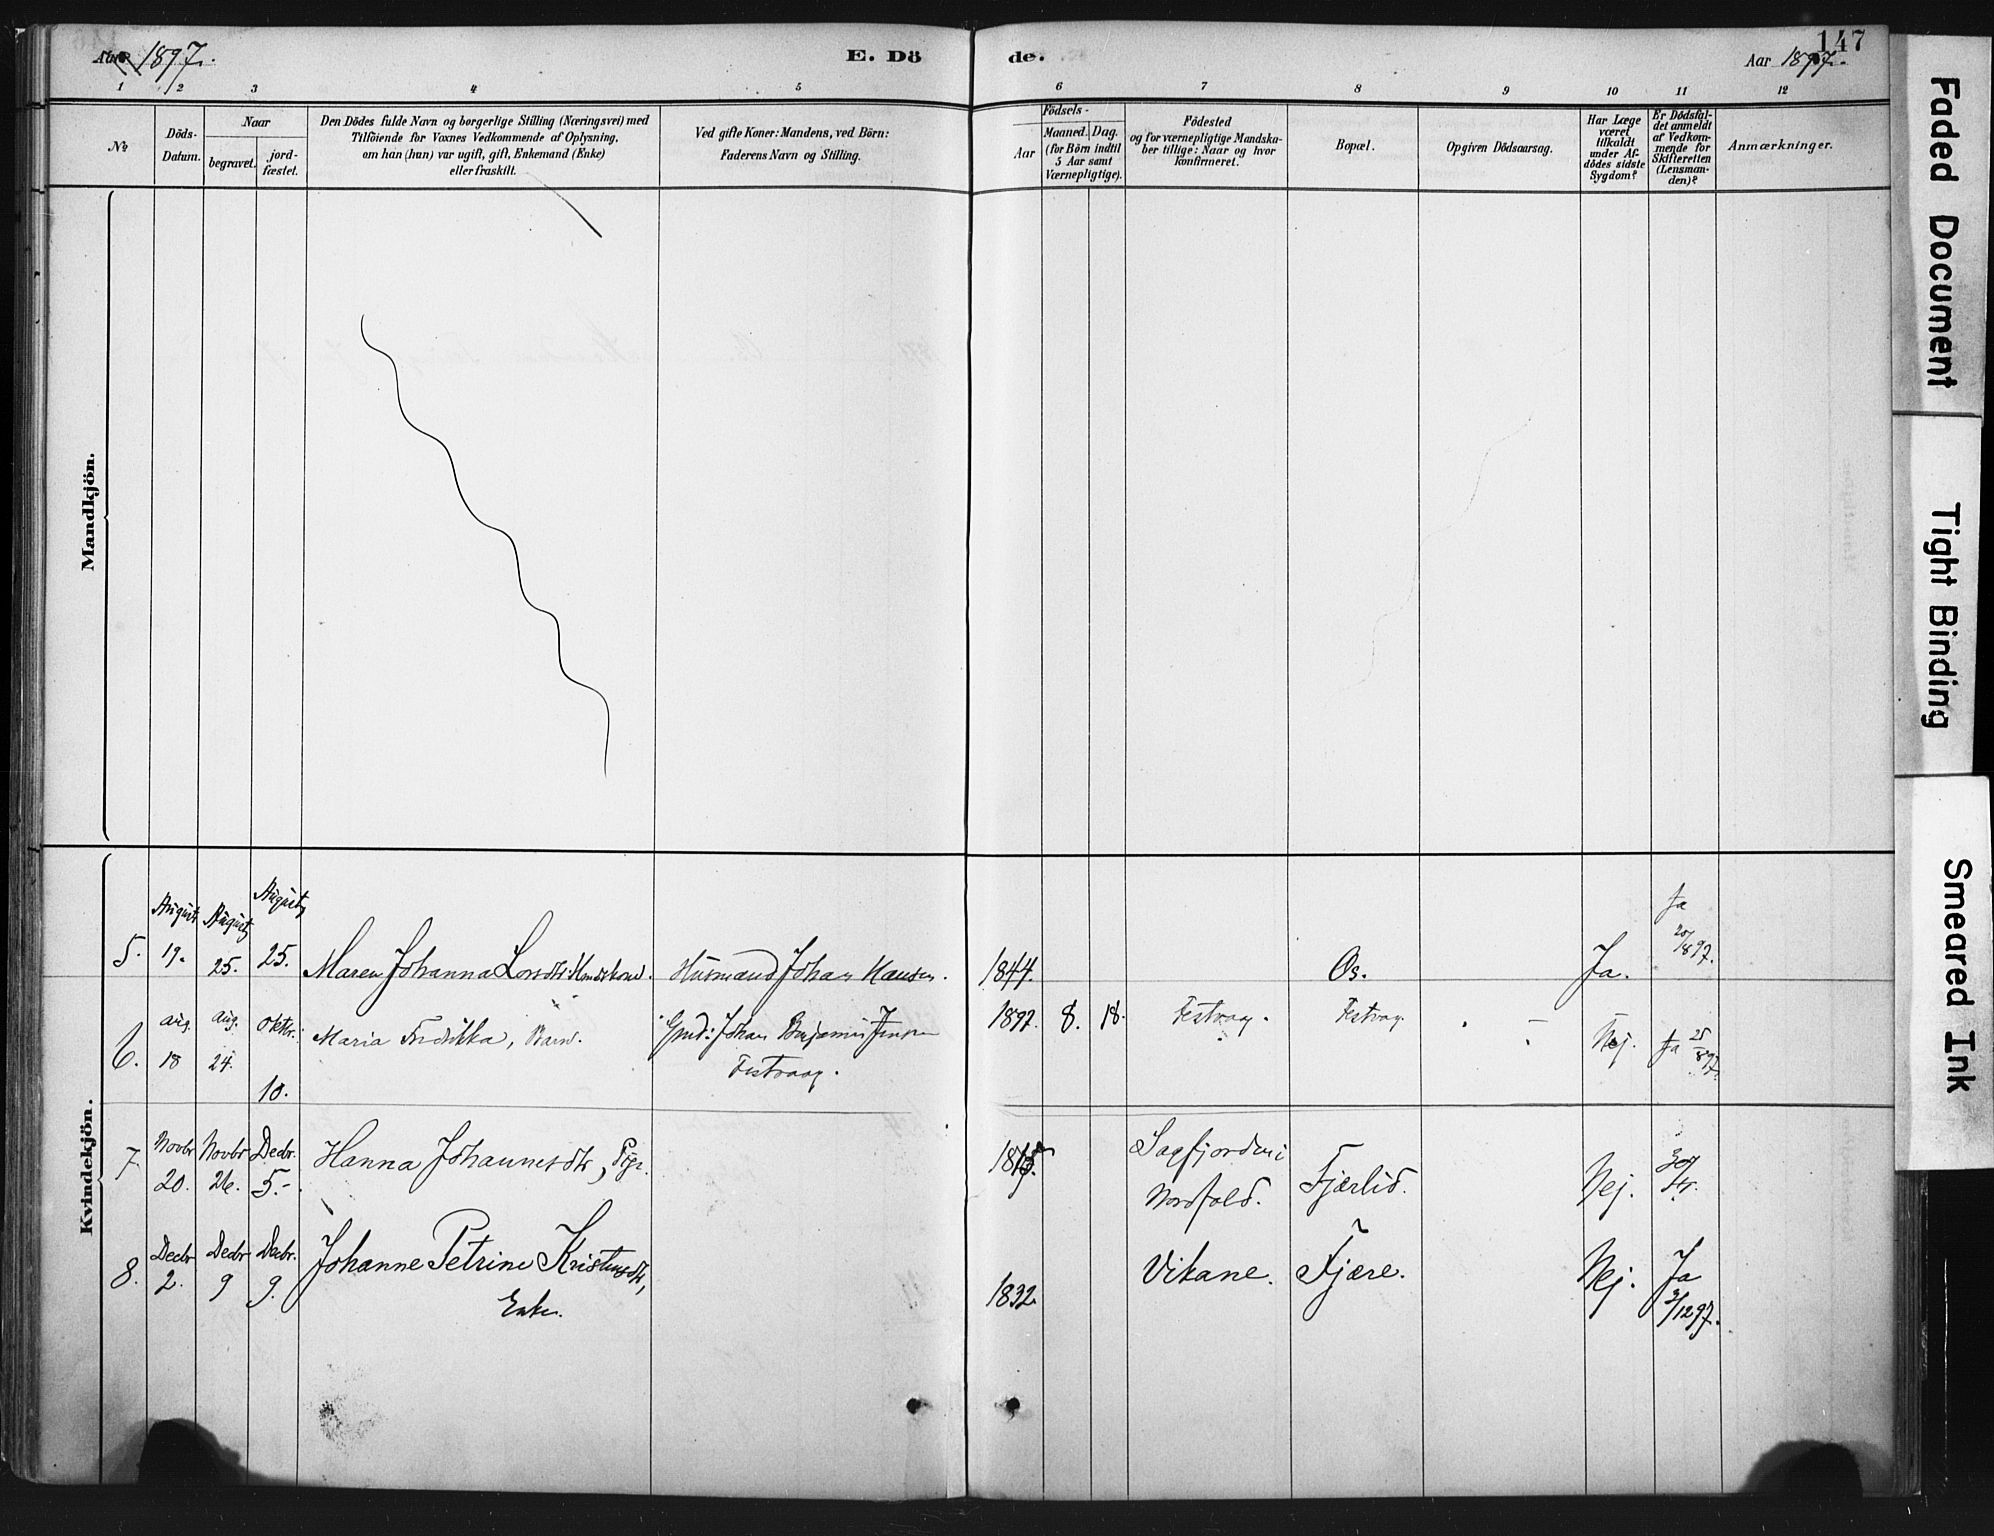 Aar 1897.
E. Dö
de.
Aar 1897.
147
1 2 3 4 5 6 7 8 9 10 11 12
No
Döds-
Datum.
Naar
begravet.
jord-
fæstet.
Den Dödes fulde Navn og borgerlige Stilling (Næringsvei) med
Tilföiende for Voxnes Vedkommende af Oplysning,
om han (hun) var ugift, gift, Enkemand (Enke)
eller fraskilt.
Ved gifte Koner: Mandens, ved Börn:
Faderens Navn og Stilling.
Födsels-
Aar
Maaned. Dag.
(for Börn indtil
5 Aar samt
Værnepligtige).
Födested
og for værnepligtige Mandska-
ber tillige: Naar og hvor
konfirmeret.
Bopæl.
Opgiven Dödsaarsag.
Har Læge
været
tilkaldt
under Af-
dödes sidste
Sygdom?
Er Dödsfal-
det anmeldt
af Vedkom-
mende for
Skifteretten
(Lensman-
den)?
Anmærkninger.
Mandkjön.
Kvindekjön.
5. August 19. August 25. August 25. Maren Johanna Husmand Johan Hansen. 1844. Os. Ja. Ja 20/8 97.
6. aug. 18 aug. 24. oktbr. 10. Maria Fredrikka, Barn. Gmd: Johan Benjamin Jensen 1897. 8. 18. Festvag. Festvag. Nej. Ja 25/8 97.
Festvaag.
7. Novbr 20. Novbr 26. Decbr. 5. Hanna Johannesdtr, Pige. Sagfjorden i
Nordfold. Fjærlid. Nej.
8. Decbr 2. Decbr 9 Decbr. 9. Johanne Petrine Kristensdtr, 1832. Vikane. Fjære. Nej. Ja 3/12 97.
Enke.
Faded Document
Tight Binding
Smeared Ink